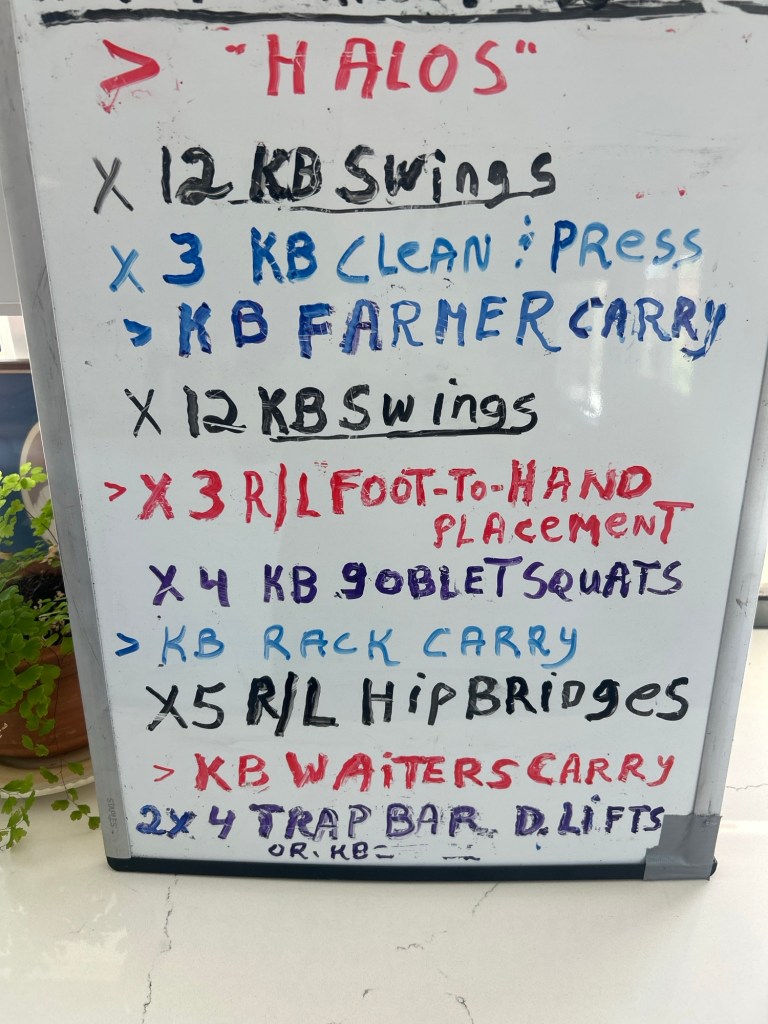 > "HALOS"
X 12 KB Swings
X 3 KB CLEAN & PRESS
> KB FARMER CARRY
X 12 KB Swings
> X 3 R/L FOOT-TO-HAND
PLACEMENT
X 4 KB GOBLET SQUATS
> KB RACK CARRY
X5 R/L HipBRIDGES
> KB WAITERS CARRY
2X 4 TRAP BAR D.LiFTS
OR. KB= —